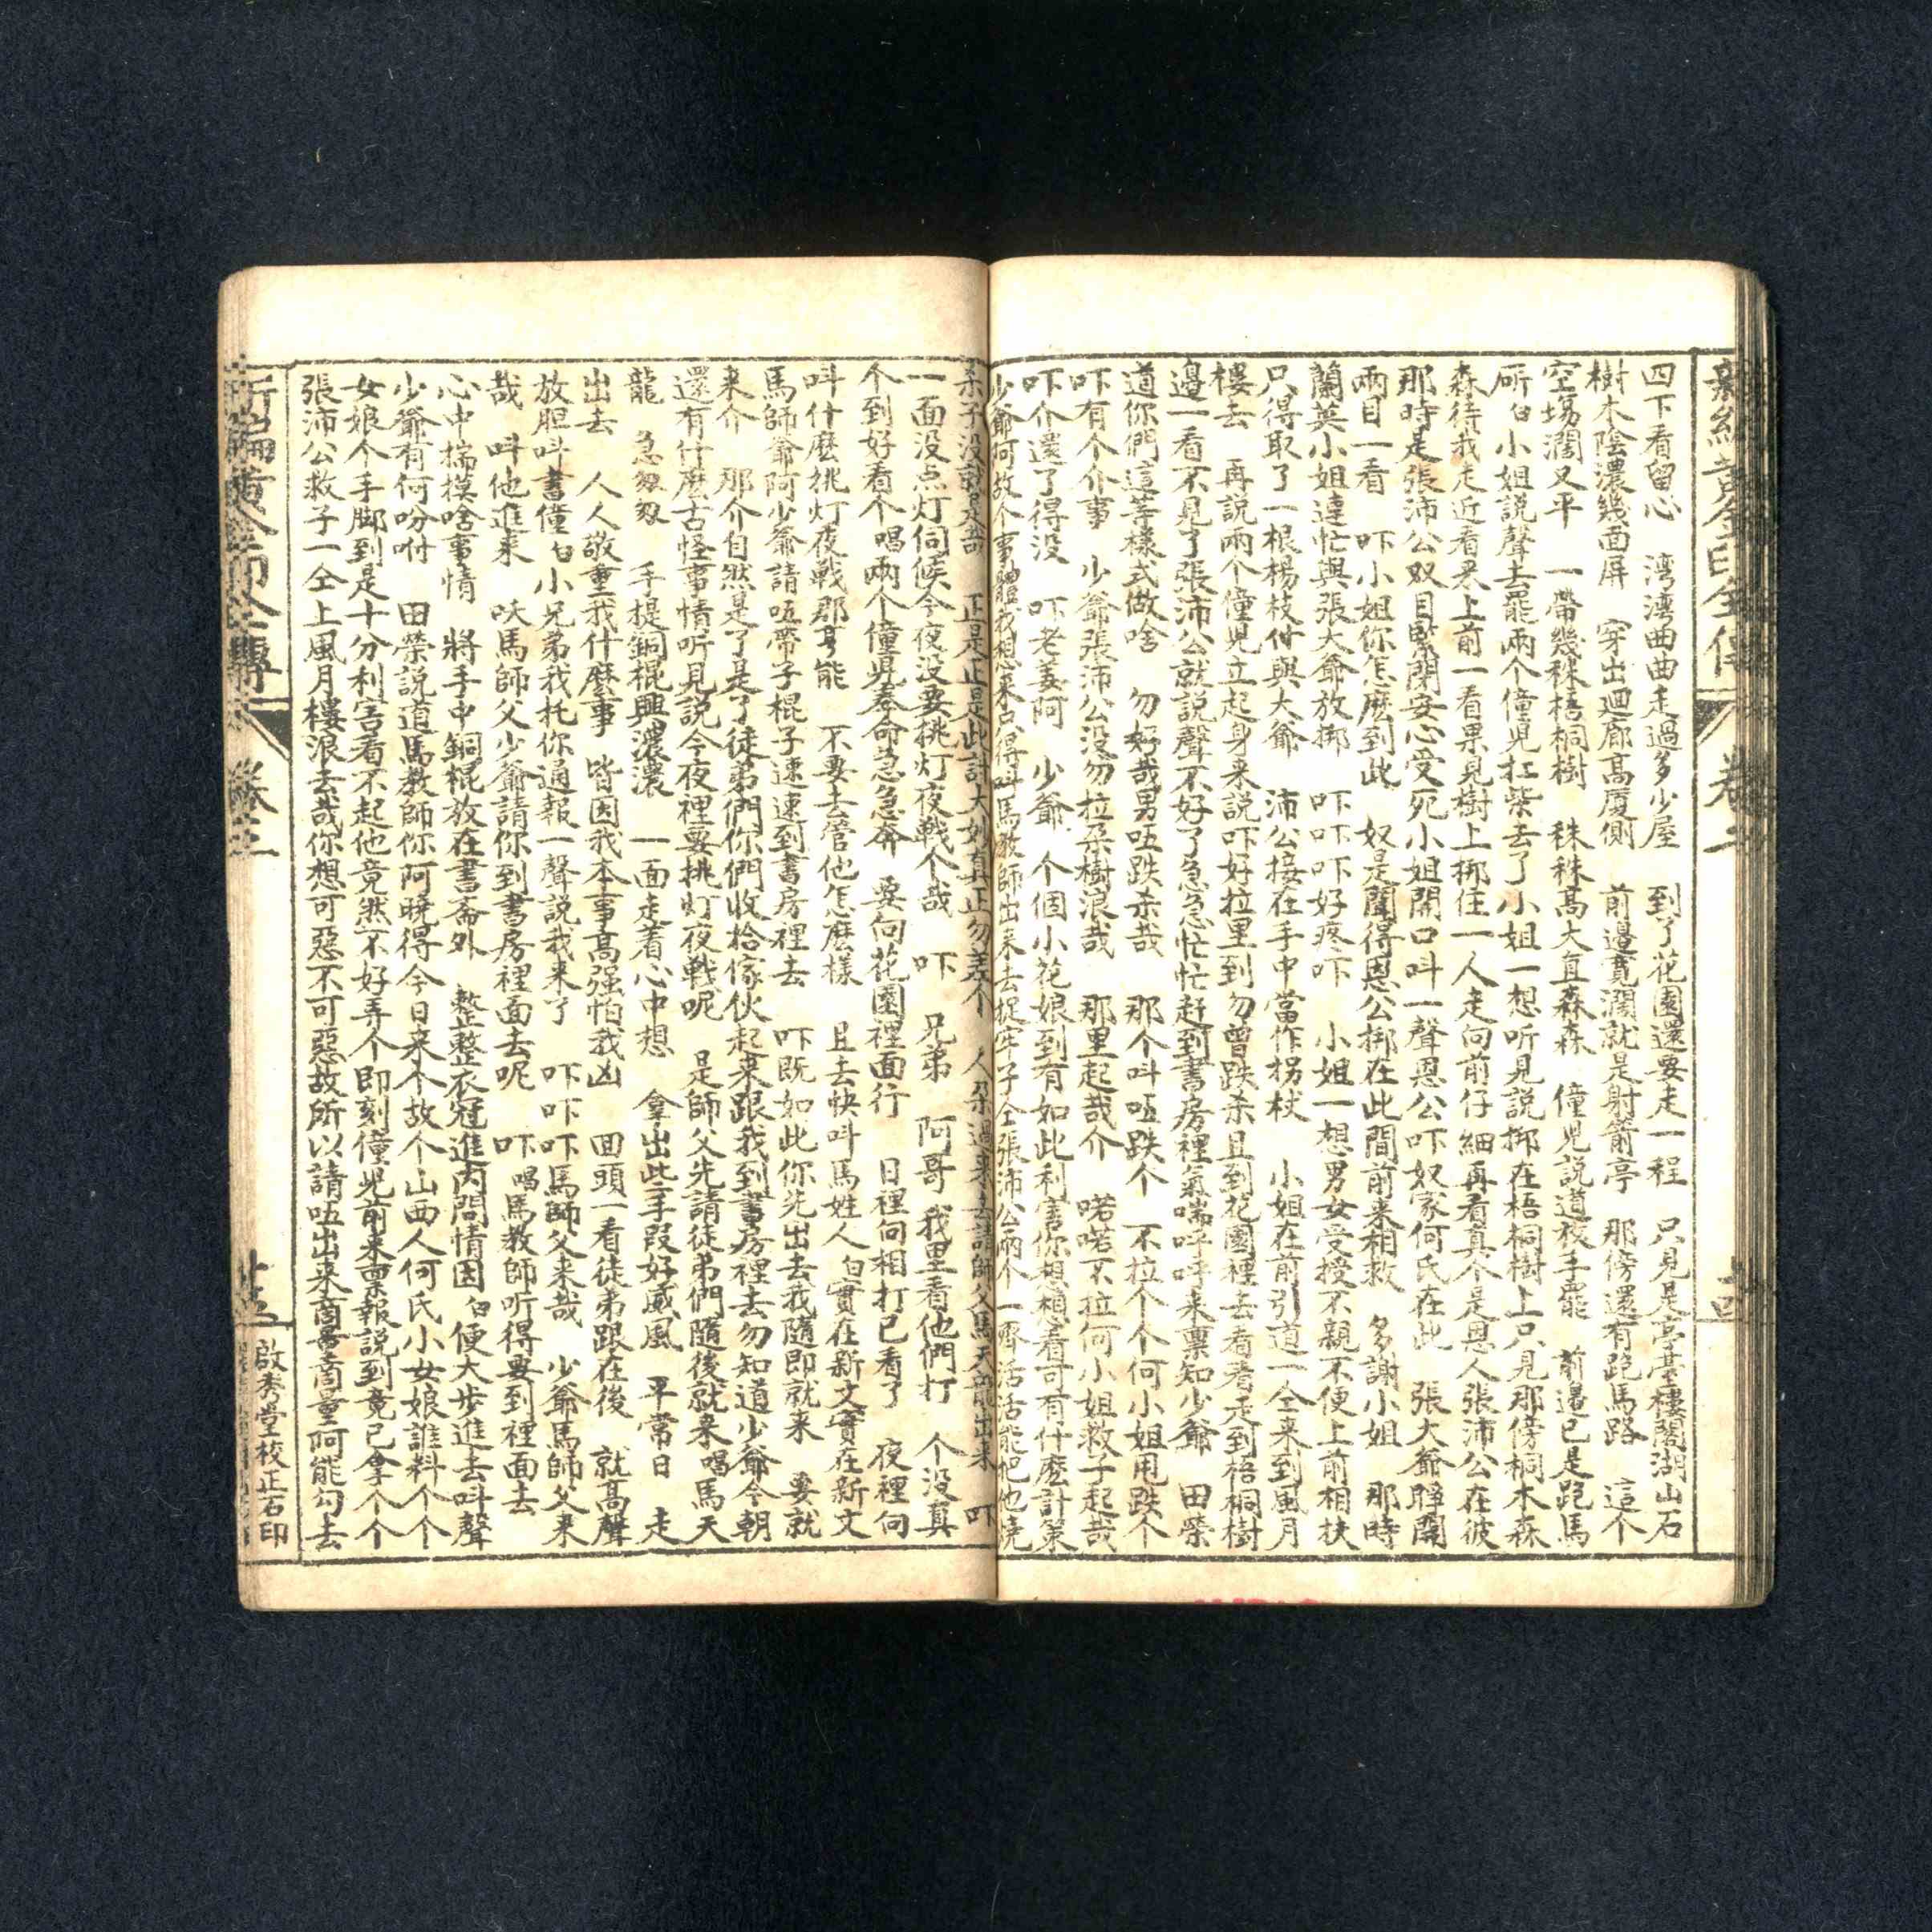 新編黃金印全傳 卷二 十四
四下看留心 湾湾曲曲走過多少屋 到了花園還要走一程 只見是亭基樓閣湖山石
樹木陰濃幾面屏 穿出迴廊高厦側 前邉寛濶就是射箭亭 那傍還有跑馬路 這个
空塲濶又平 一帶幾秼梧桐樹 秼秼高大直森森 僮児説道被手罷 前邉已是跑馬
所白小姐説聲去罷兩个僮児扛柴去了小姐一想听見説挷在梧桐樹上只見那傍桐木森
森待我走近看来上前一看果見樹上挷住一人走向前仔細再看真个是恩人張沛公在彼
那時是張沛公双目緊閉安心受死小姐開口呌一聲恩公吓奴家何氏在此 張大爺睜開
兩目一看 吓小姐你怎麽到此 奴是聞得恩公挷在此間前来相救 多謝小姐 那時
蘭英小姐連忙與張大爺放挷 吓吓吓好疼吓 小姐一想男女受授不親不便上前相扶
只得取了一根楊枝付與大爺 沛公接在手中當作拐杖 小姐在前引道一仝来到風月
樓去 再説兩个僮児立起身来説吓好拉里到勿曾跌杀且到花園裡去看看走到梧桐樹
邉一看不見了張沛公就説聲不好了急急忙忙赶到書房裡氣喘呼呼来禀知少爺 田榮
道你們這等樣式做啥 勿好哉男𠲎跌杀哉 那个呌𠲎跌个 不拉个个何小姐甩跌个
吓有个介事 少爺張沛公没勿拉朶樹浪哉 那里起哉介 喏喏不拉何小姐救子起哉
吓介還了得没 吓老姜阿 少爺 个個小花娘到有如此利害你想想看可有什麽計策
少爺阿故个事體我想来只得呌馬教師出来去捉牢子仝張沛公兩个一齊活活能把他燒
杀子没 正是正是此計大妙真正勿差个 人来過来去請師父馬天龍出来 吓
一面没点灯伺候今夜没要挑灯夜戰个哉 吓 兄弟 阿哥 我里看他們打 个没真
个到好看个 唱兩个僮児奉命急急奔 要向花園裡面行 日裡向相打已看了 夜裡向
呌什麽挑灯夜戰那哼能 不要去管他怎麽樣 且去快呌馬姓人 白實在新文實在新文
馬師爺阿少爺請𠲎帶子棍子速速到書房裡去 吓既如此你先出去我隨即就来 要就
来介 那介自然是了是了徒弟們你們收拾傢伙起来跟我到書房裡去勿知道少爺今朝
還有什麽古怪事情听見説今夜裡要挑灯夜戰呢 是師父先請徒弟們隨後就来 唱馬天
龍 急匆匆 手提銅棍興濃濃 一面走着心中想 拿出此手叚好威風 平常日 走
出去 人人敬重我什麽事 皆因我本事高强怕我凶 囬頭一看徒弟跟在後 就高聲
放胆呌書僮白小兄弟我托你通報一聲説我来了 吓吓吓馬師父来哉 少爺馬師父来
哉 呌他進来 呔馬師父少爺請你到書房裡面去呢 吓 唱馬教師听得要到裡面去
心中揣摸啥事情 將手中銅棍放在書斎外 整整衣冠進內問情因 白便大步進去呌聲
少爺有何吩咐 田榮説道馬教師你阿曉得今日来个故个山西人何氏小女娘誰料个个
女娘个手脚到是十分利害看不起他竟然不好弄个即刻僮児前来禀報説到竟已拿个个
張沛公救子一仝上風月樓浪去哉你想可惡不可惡故所以請𠲎出来商量商量阿能勾去
新編黃金印全傳 卷二 十五
啟秀堂校正石印